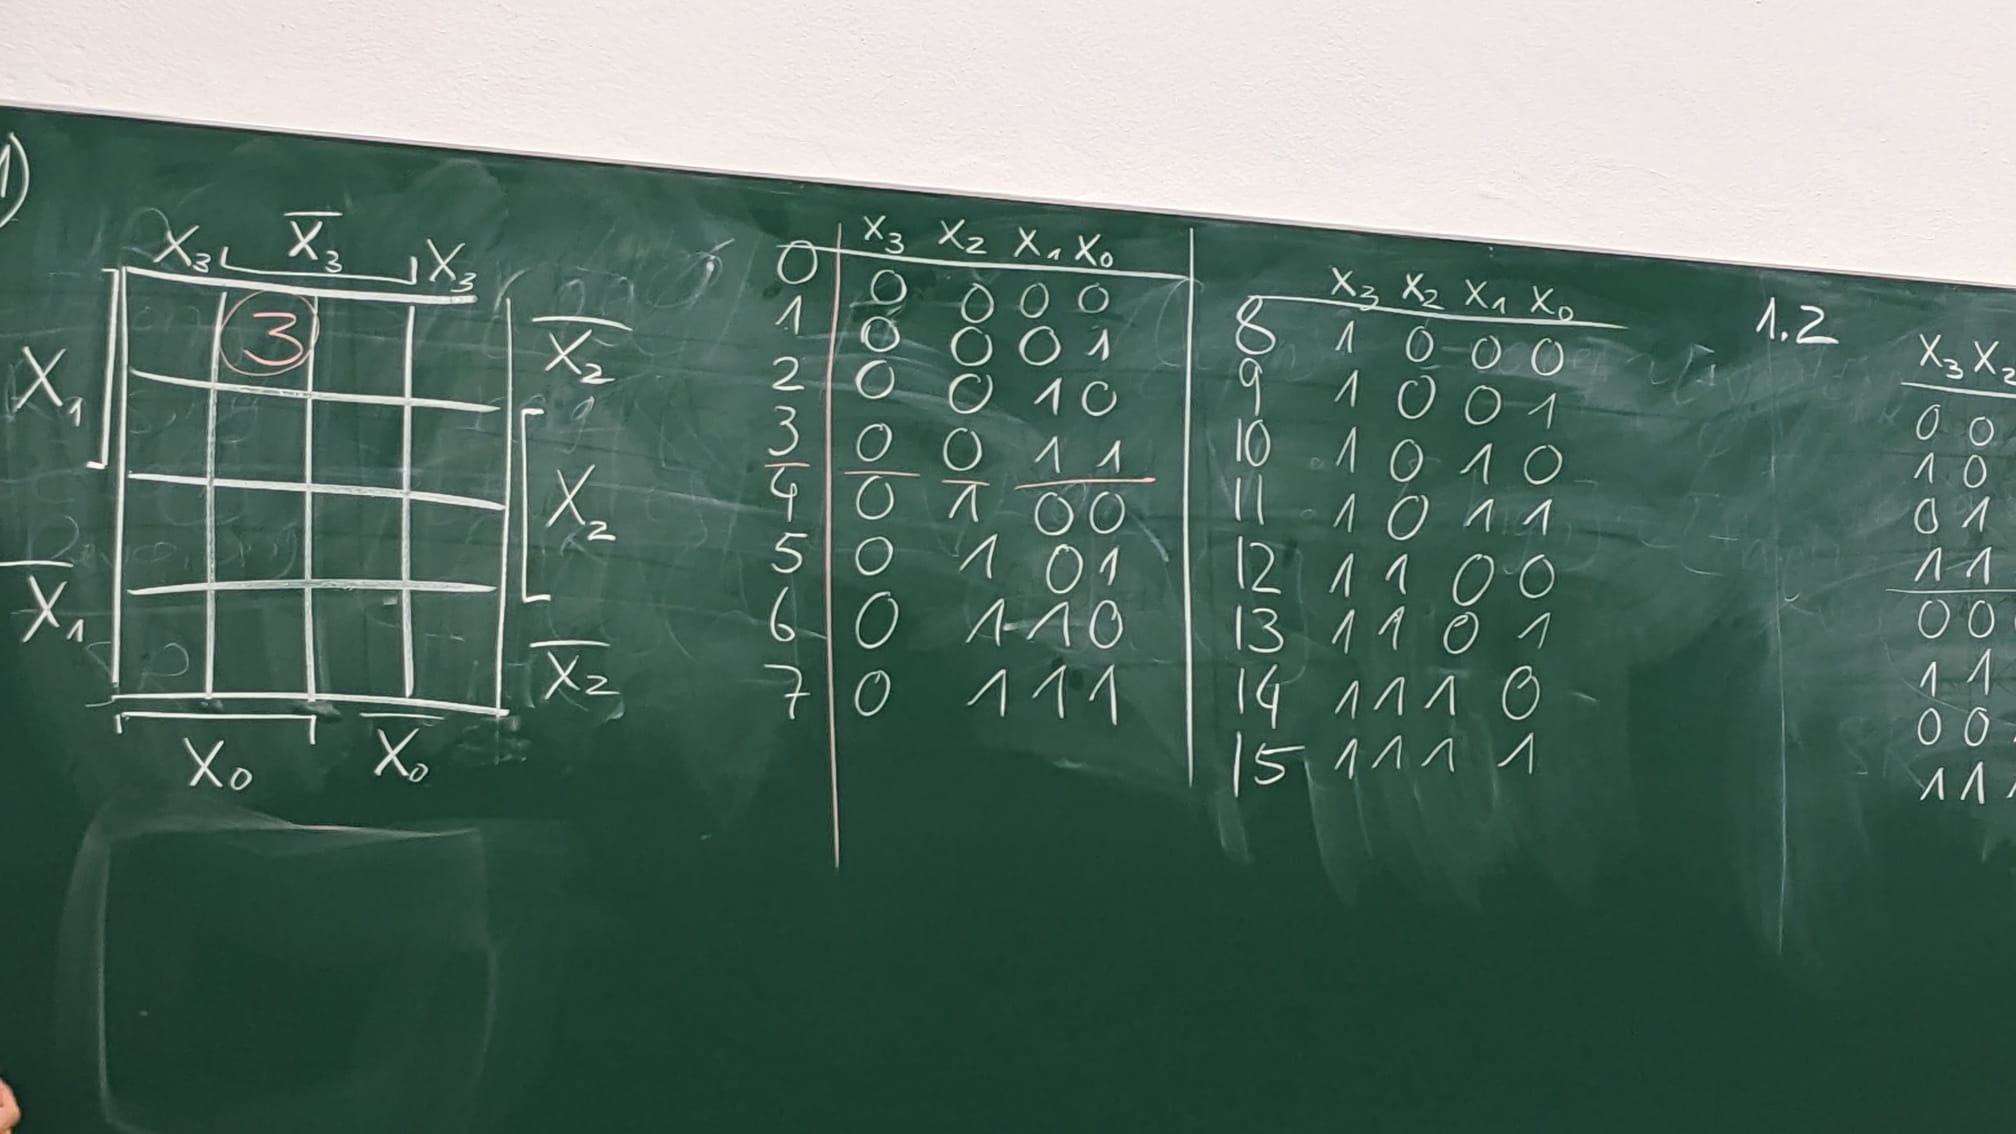 1)
X₃ X̅₃ X₃
X₁ 3 X̅₂
X₂
X̅₁ X̅₂
X₀ X̅₀
X₃ X₂ X₁ X₀
0 0 0 0 0
1 0 0 0 1
2 0 0 1 0
3 0 0 1 1
4 0 1 0 0
5 0 1 0 1
6 0 1 1 0
7 0 1 1 1
X₃ X₂ X₁ X₀
8 1 0 0 0
9 1 0 0 1
10 1 0 1 0
11 1 0 1 1
12 1 1 0 0
13 1 1 0 1
14 1 1 1 0
15 1 1 1 1
1.2
X₃ X₂
0 0
1 0
0 1
1 1
0 0
1 1
0 0
1 1